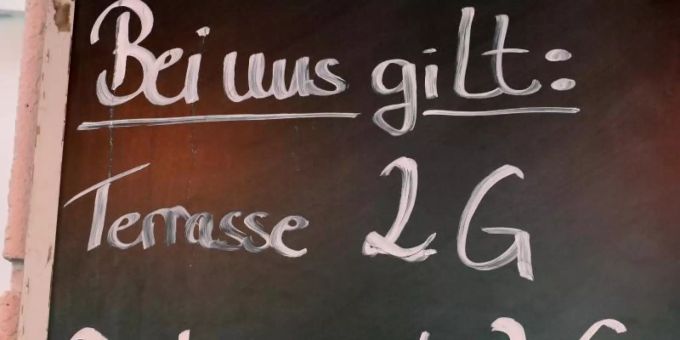 Bei uns gilt:
Terrasse 2G